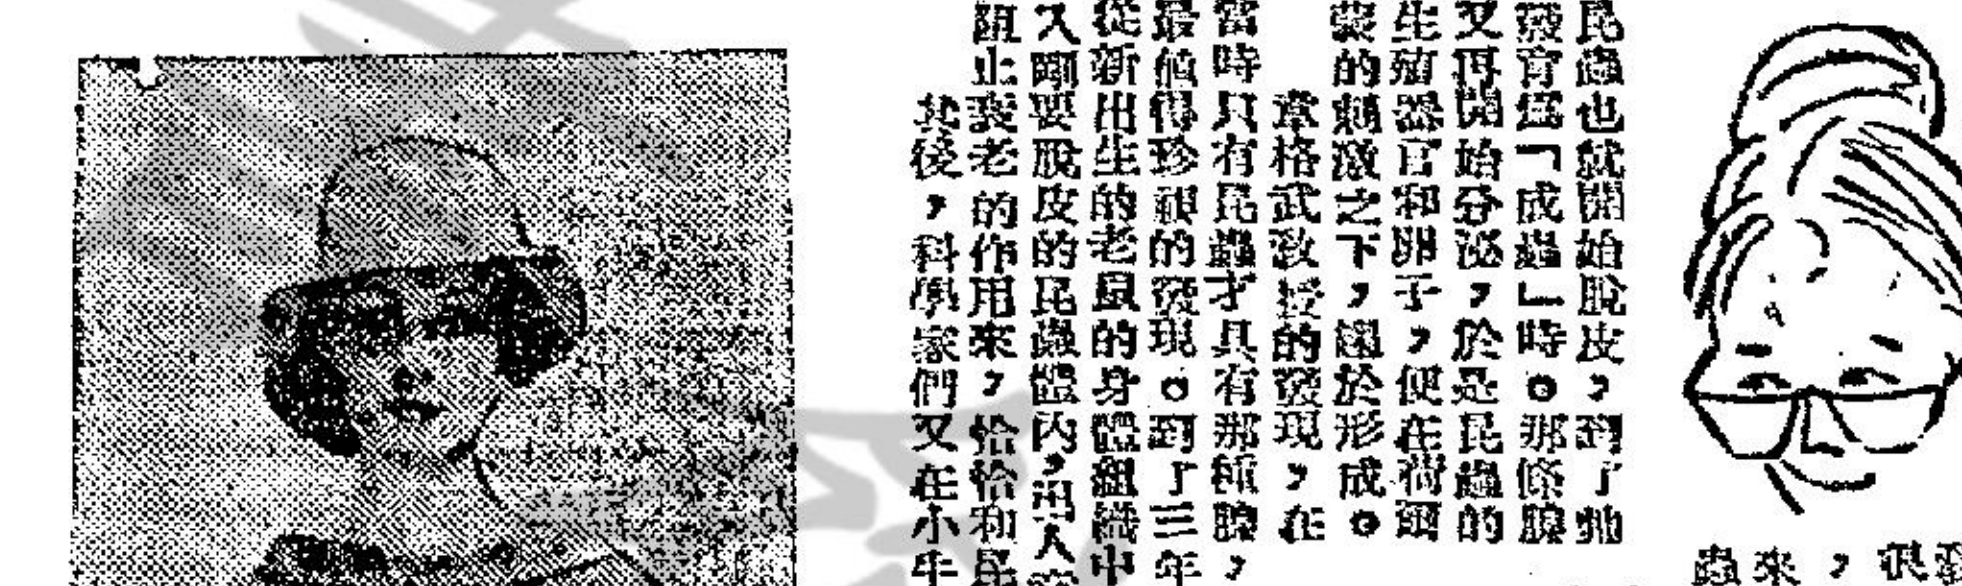 昆蟲也就開始脫皮,到了牠
發育爲「成蟲」時。那條腺
又再開始分泌,於是昆蟲的
生殖器官和卵子,便在荷爾
蒙的刺激之下,趨於形成。
韋格武敎授的發現,在
當時只有昆蟲才具有那種腺,
最值得珍視的發現。到了三年
從新出生的老鼠的身體組織中
入剛要脫皮的昆蟲體內,
阻止衰老的作用來,恰恰和昆
此後,科學家們又在小牛
很
,
來
蟲